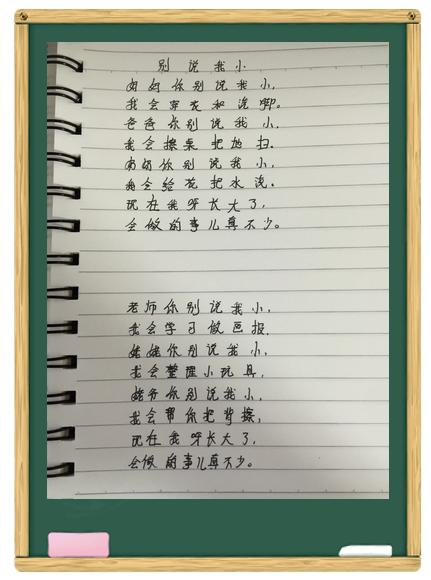 别说我小
妈妈你别说我小,
我会穿衣和洗脚。
爸爸你别说我小,
我会擦桌把地扫.
奶奶你别说我小,
我会给花把水浇.
现在我呀长大了,
会做的事儿真不少。
老师你别说我小,
我会学习做画报.
姥姥你别说我小,
我会整理小玩具,
姥爷你别说我小,
我会帮你把背擦,
现在我呀长大了,
会做的事儿真不少。